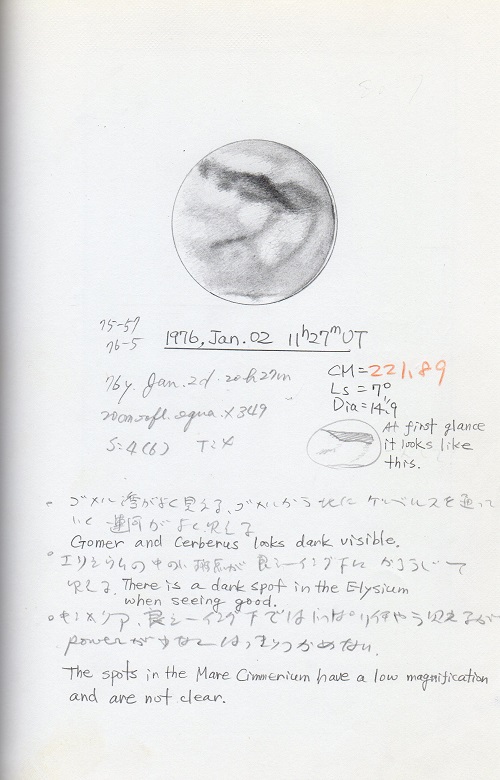 75-57
76-5
1976, Jan. 02 11h27mUT
76y. Jan. 2d. 20h27m
20cm refl. equa. x 349
S:4(6) T:4
CM=221.89
Ls = 7°
Dia=14".9
At first glance
it looks like
this.
ゴメル湾がよく見える、ゴメルから北に ケルベルスを通って
運河がよく
Gomer and Cerberus looks dark visible.
エリシウムの中の 良シーイング下に かろうじて
There is a dark spot in the Elysium
when seeing good.
キンメリア、良シーイング下では
powerが
The spots in the Mare Cimmerium have a low magnification
and are not clear.